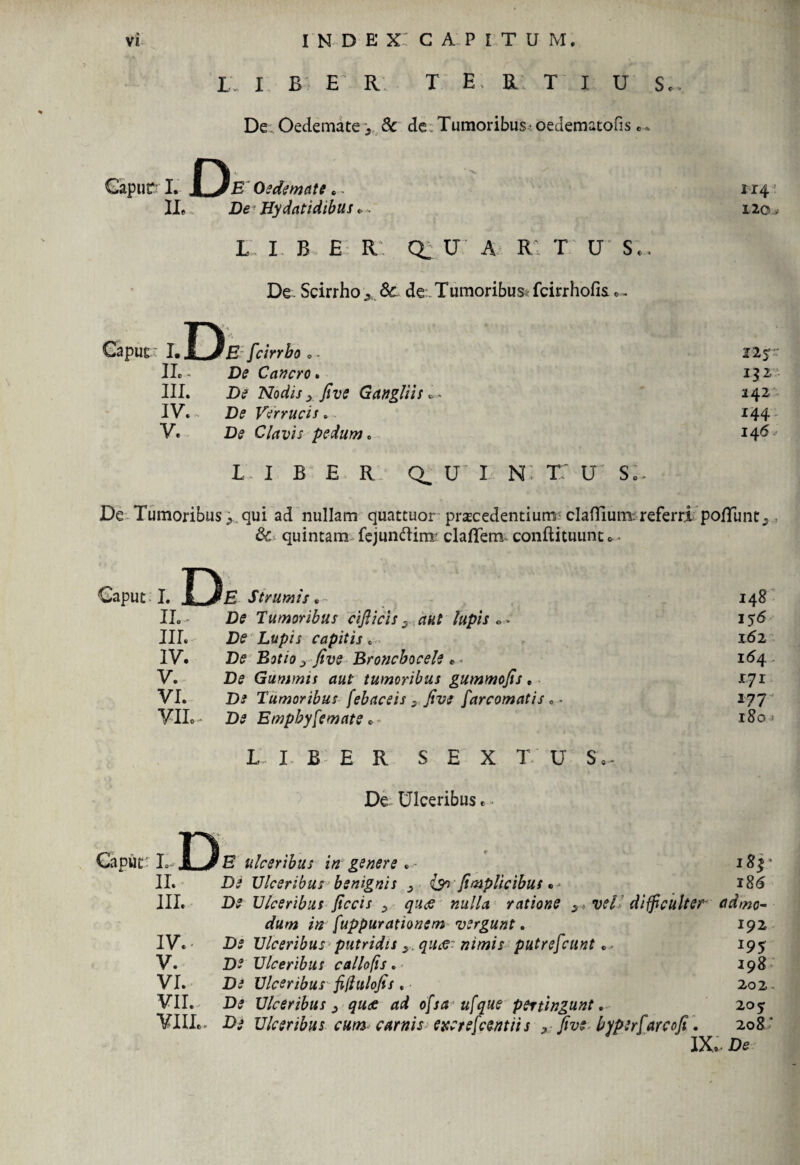 vi INDEX CAPITUM.
LIBER TERTIUS.
De Oedemate, & de Tumoribus oedematosis.
Caput I. DE Oedemate. 114
II. De Hydatidibus. 120
LIBER QUARTUS.
De Scirrho, & de Tumoribus scirrhosis.
Caput I. DE scirrho. 125
II. De Cancro. 132
III. De Nodis, sive Gangliis. 142
IV. De Verrucis. 144
V. De Clavis pedum. 146
LIBER QUINTUS.
De Tumoribus, qui ad nullam quattuor præcedentium classium referri possunt,
& quintam sejunctim classem constituunt.
Caput I. DE Strumis. 148
II. De Tumoribus cisticis, aut lupis. 156
III. De Lupis capitis. 162
IV. De Botio, sive Bronchocele. 164
V. De Gummis aut tumoribus gummosis. 171
VI. De Tumoribus sebaceis, sive sarcomatis. 177
VII. De Emphysemate. 180
LIBER SEXTUS.
De Ulceribus.
Caput I. DE ulceribus in genere. 183
II. De Ulceribus benignis, & simplicibus. 186
III. De Ulceribus siccis, quæ nulla ratione, vel difficulter admo-
dum in suppurationem vergunt. 192
IV. De Ulceribus putridis, quæ nimis putrescunt. 195
V. De Ulceribus callosis. 198
VI. De Ulceribus fistulosis. 202
VII. De Ulceribus, quæ ad ossa usque pertingunt. 205
VIII. De Ulceribus cum carnis excrescentiis, sive hypersarcosi. 208
IX. De